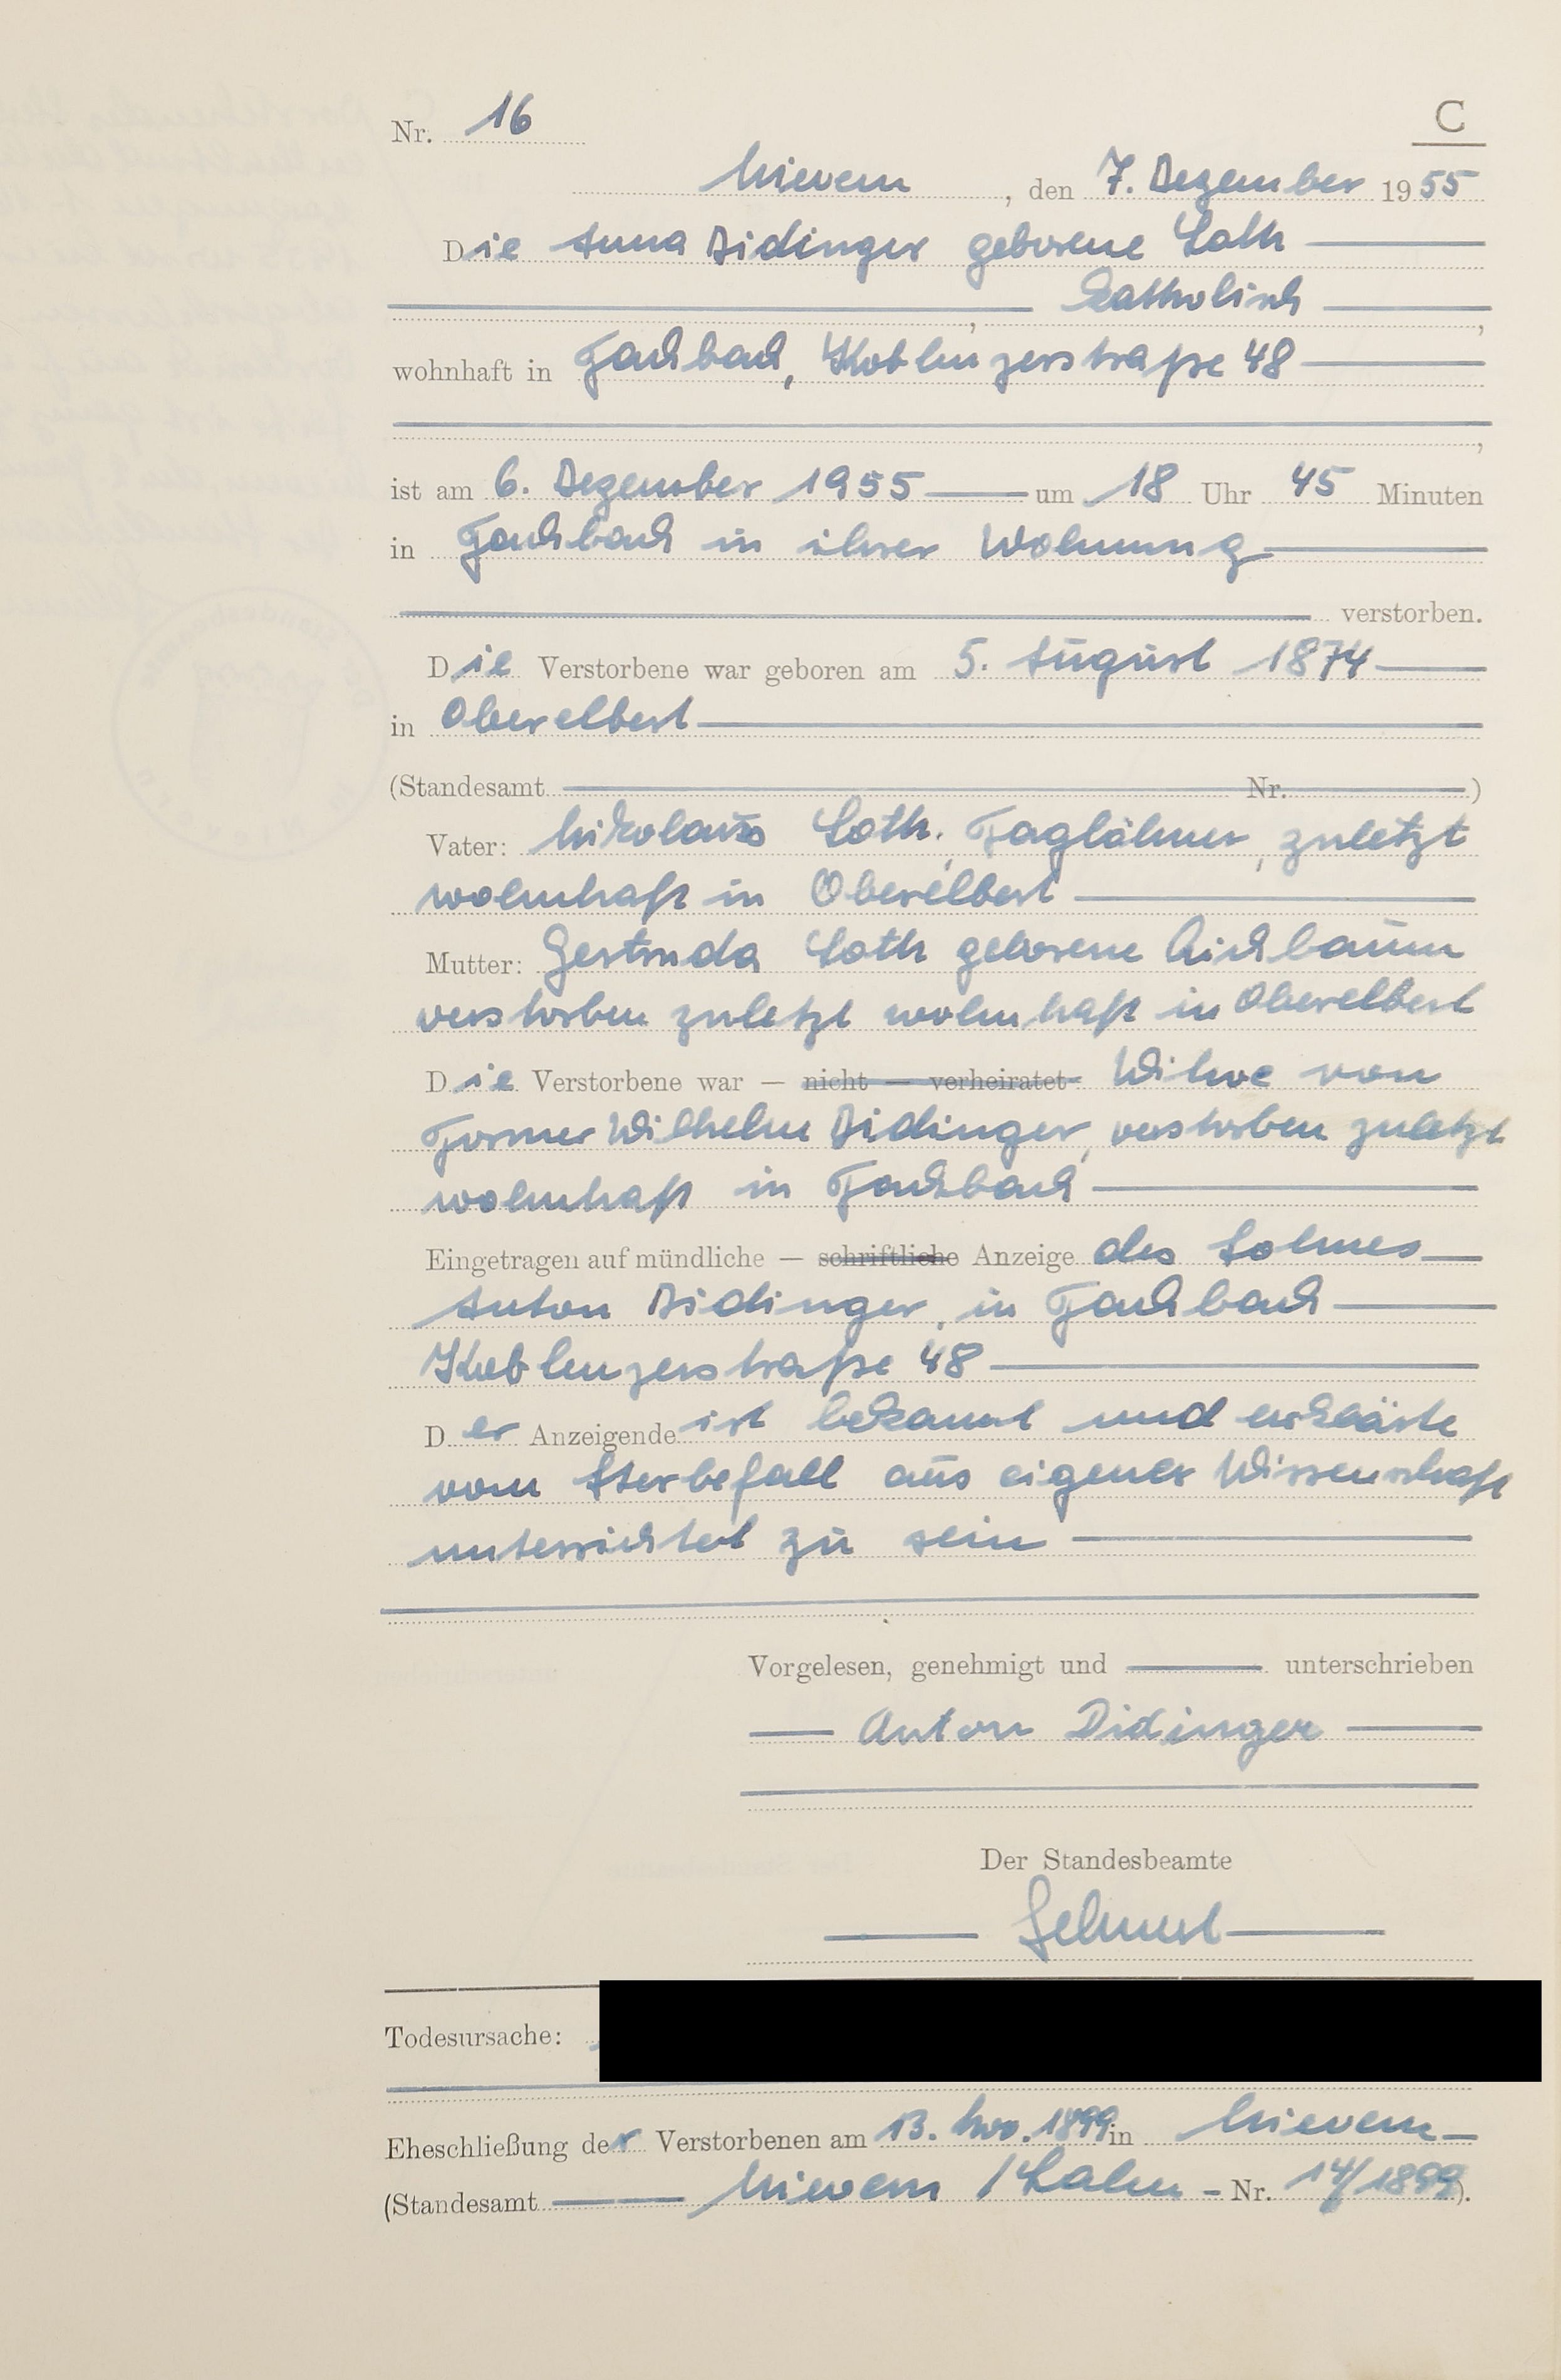 Nr. 16
C
Nievern, den 7. Dezember 1955
Die Anna Didinger geborene Loth
, katholisch,
wohnhaft in Fachbach, Koblenzerstraße 48
,
ist am 6. Dezember 1955 um 18 Uhr 45 Minuten
in Fachbach in ihrer Wohnung
verstorben.
Die Verstorbene war geboren am 5. August 1874
in Oberelbert
(Standesamt Nr. )
Vater: Nikolaus Loth, Taglöhner, zuletzt
wohnhaft in Oberelbert
Mutter: Gertruda Loth geborene
verstorben zuletzt wohnhaft in Oberelbert
Die Verstorbene war — nicht — verheiratet Witwe von
Former Wilhelm Didinger, verstorben zuletzt
wohnhaft in Fachbach
Eingetragen auf mündliche — schriftliche Anzeige des Sohnes
Anton Didinger, in Fachbach
Koblenzerstraße 48
Der Anzeigende ist bekannt und erklärte
vom Sterbefall aus eigener Wissenschaft
unterrichtet zu sein
Vorgelesen, genehmigt und unterschrieben
Anton Didinger
Der Standesbeamte
Todesursache:
Eheschließung der Verstorbenen am 13. Nov. 1899 in Nievern
(Standesamt Nievern / Lahn - Nr. 14/1899).